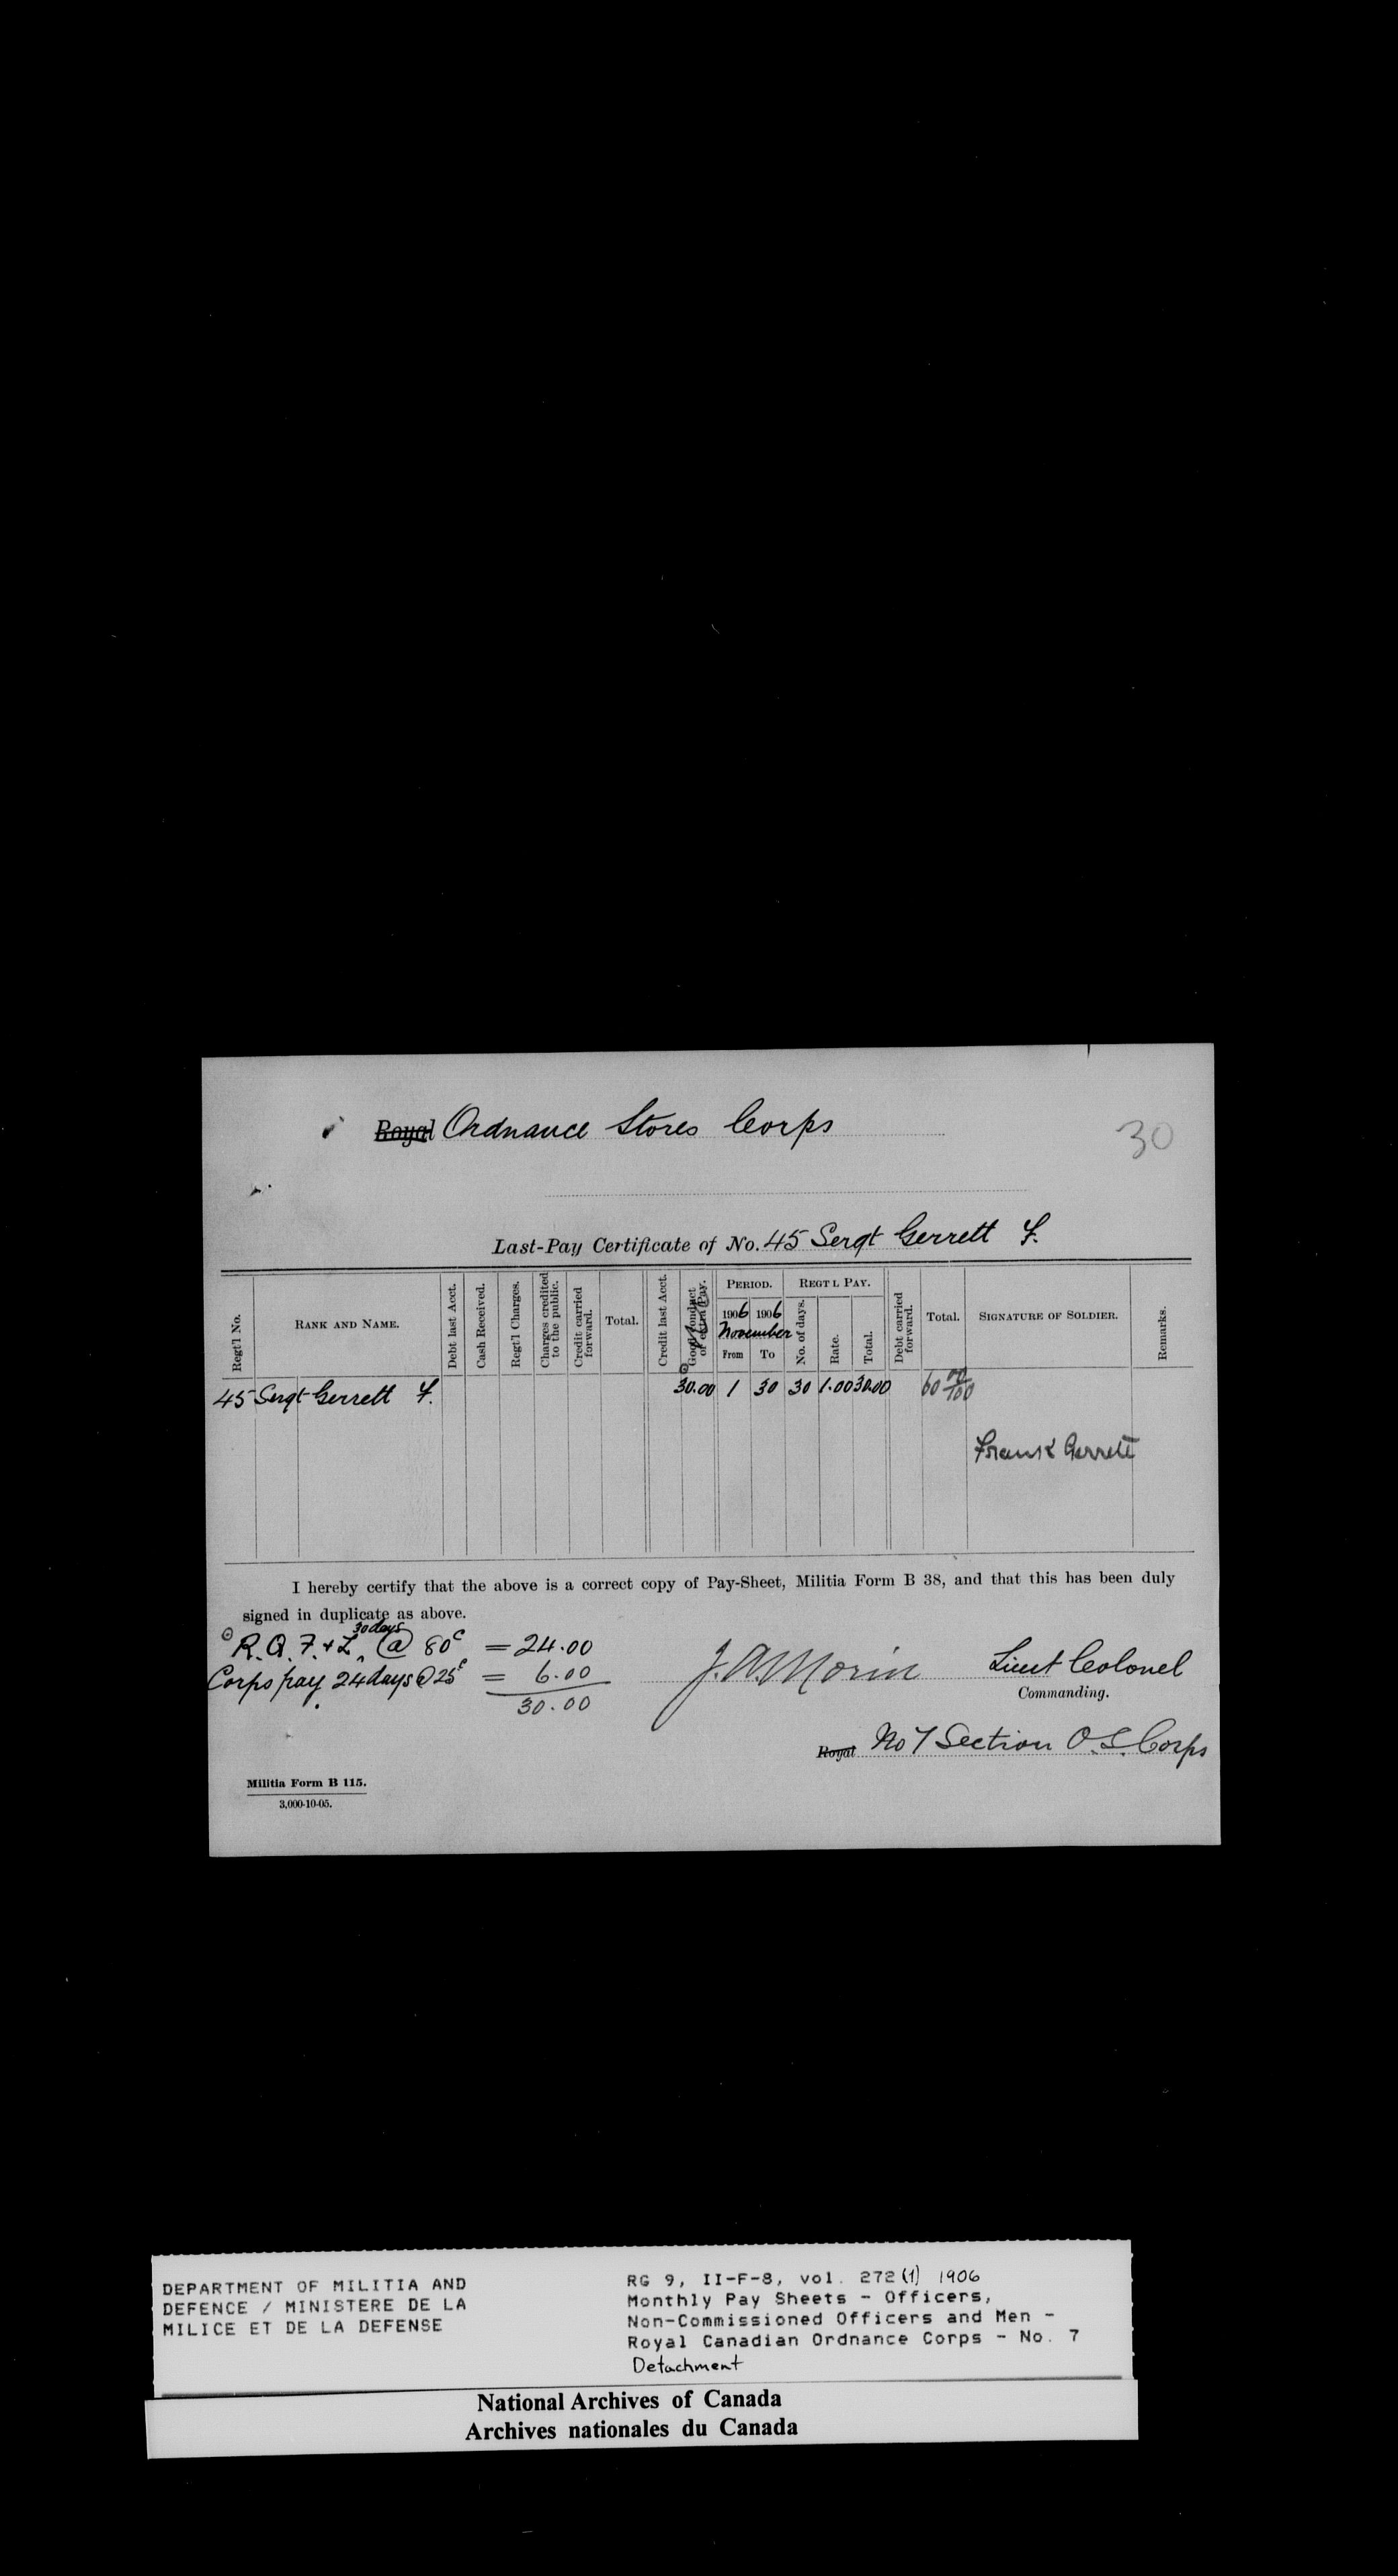 Royal Ordnance Stores Corps
30
Last-Pay Certificate of No. 45 Sergt Gerrett F.
Regt'l No.
RANK AND NAME.
Debt last Acct.
Cash Received.
Regt'l Charges.
Charges credited to the public.
Credit carried forward.
Total.
Credit last Acct.
Good Conduct or extra Pay.
PERIOD.
1906 1906
November
From To
REGT'L PAY.
No. of days.
Rate.
Total.
Debt carried forward.
Total.
SIGNATURE OF SOLDIER.
Remarks.
45 Sergt Gerrett F. 30.00 1 30 30 1.00 30.00 60 00/100
Frank Gerrett
I hereby certify that the above is a correct copy of Pay-Sheet, Militia Form B 38, and that this has been duly
signed in duplicate as above.
30 days
R.Q. F. + L. @ 80c = 24.00
Corps pay 24 days @ 25c = 6.00
30.00
J.A. Morin Lieut Colonel
Commanding.
Royal No 7 Section O.S. Corps
Militia Form B 115.
3,000-10-05.
DEPARTMENT OF MILITIA AND
DEFENCE / MINISTERE DE LA
MILICE ET DE LA DEFENSE
RG 9, II-F-8, vol. 272 (1) 1906
Monthly Pay Sheets - Officers,
Non-Commissioned Officers and Men -
Royal Canadian Ordnance Corps - No. 7
Detachment
National Archives of Canada
Archives nationales du Canada